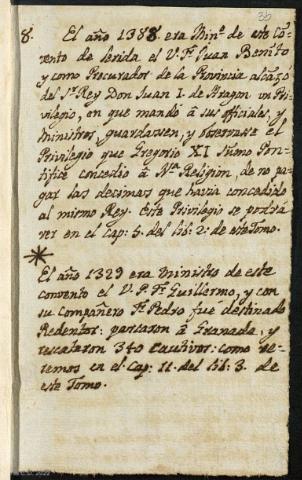 35
8. El año 1388 era Minº. de este Cõ
vento de Lerida el V. Fr. Juan Benito
y como Procurador de la Provincia alcãzo
del Sr. Rey Don Juan I. de Aragon un Pri-
vilegio, en que mandó á sus officiales, y
Ministros guardassen, y observasse el
Privilegio que Gregorio XI Sumo Pon-
tifice concedió á Nra. Religion, de no pa-
gar las decimas que havia concedido
al mismo Rey. Este Privilegio se podrá
ver en el Cap: 5. del lib: 2: de este Tomo.
El año 1329 era Ministro de este
convento el V. P. Fr. Guillermo, y con
su Compañero Fr. Pedro fué destinado
Redentor: passaron á Granada, y
rescataron 340 cautivos: como ve-
remos en el Cap: 11. del lib: 3. de
este Tomo.